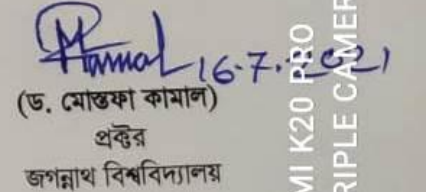 16.7.2021
(ড. মোস্তফা কামাল)
প্রক্টর
জগন্নাথ বিশ্ববিদ্যালয়
MI K20 PRO
RIPLE CAMER